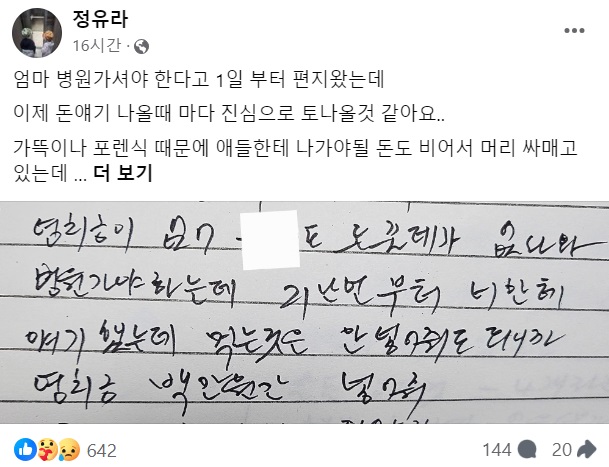 정유라
16시간 ·
엄마 병원가셔야 한다고 1일 부터 편지왔는데
이제 돈얘기 나올때 마다 진심으로 토나올것 같아요..
가뜩이나 포렌식 때문에 애들한테 나가야될 돈도 비어서 머리 싸매고
있는데 ... 더 보기
영치금이 도 없다와
병원가야 하는데 지난번부터 너한테
얘기 했는데 먹는것은 안 넣어줘도 되니까
영치금 백만원만 넣어줘
642
144
20